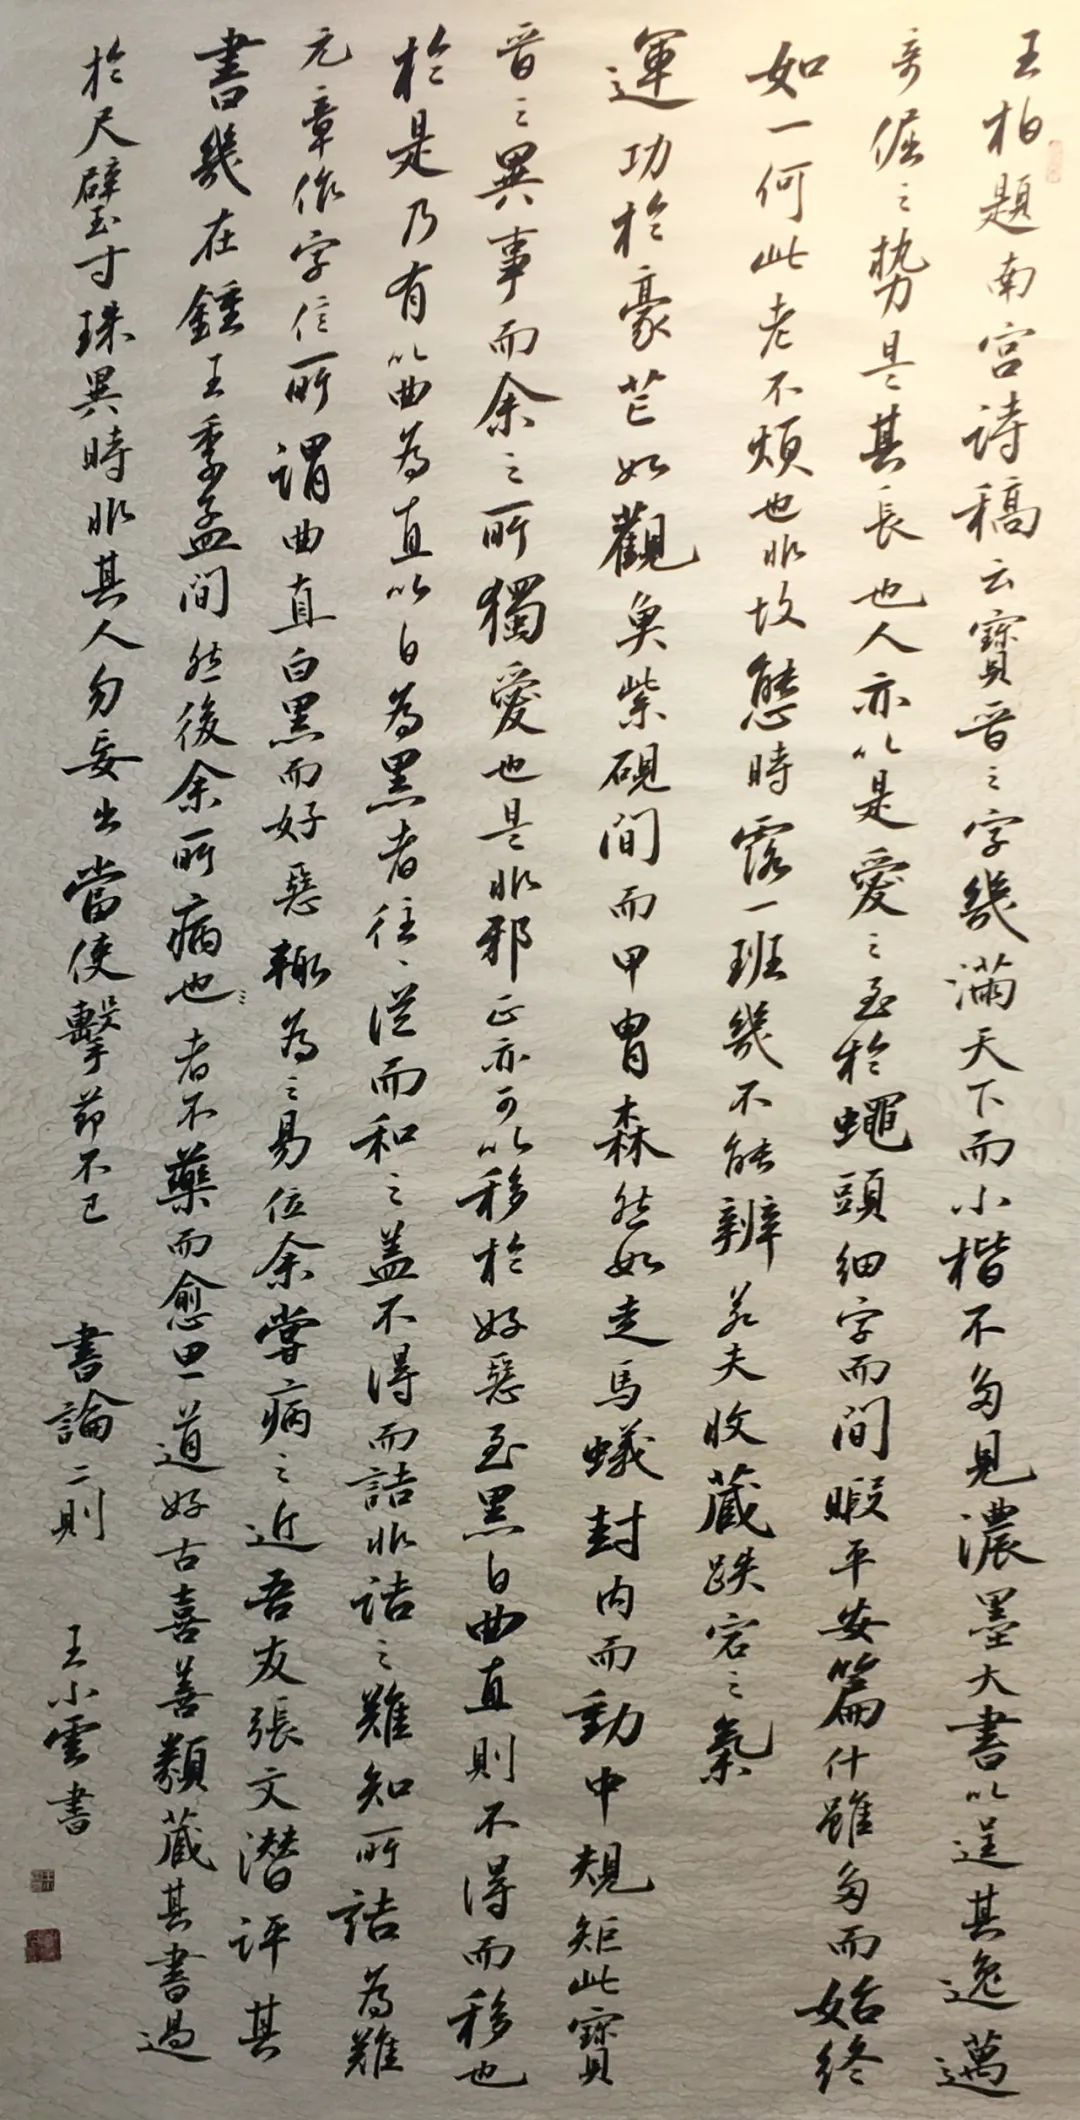 王柏題南宮詩稿云寶晉之字幾滿天下而小楷不多見濃墨大書以逞其逸邁
奇倔之勢是其長也人亦以是愛之至於蠅頭細字而間暇平安篇什雖多而始終
如一何此老不煩也非故態時露一班幾不能辨若夫收藏跌宕之氣
運功於豪芒如觀奧紫硯間而甲胄森然如走馬蟻封內而動中規矩此寶
晉之異事而余之所獨愛也是非邪正亦可以移於好惡至黑白曲直則不得而移也
於是乃有以曲為直以白為黑者往〻從而和之盖不得而詰非詰之難知所詰為難
元章作字信所謂曲直白黑而好惡輒為之易位余嘗病之近吾友張文潛評其
書幾在鍾王季孟間然後余所病也〻者不藥而愈思道好古喜善類藏其書過
於尺璧寸珠異時非其人勿妄出當使擊節不已 書論二則 王小雲書